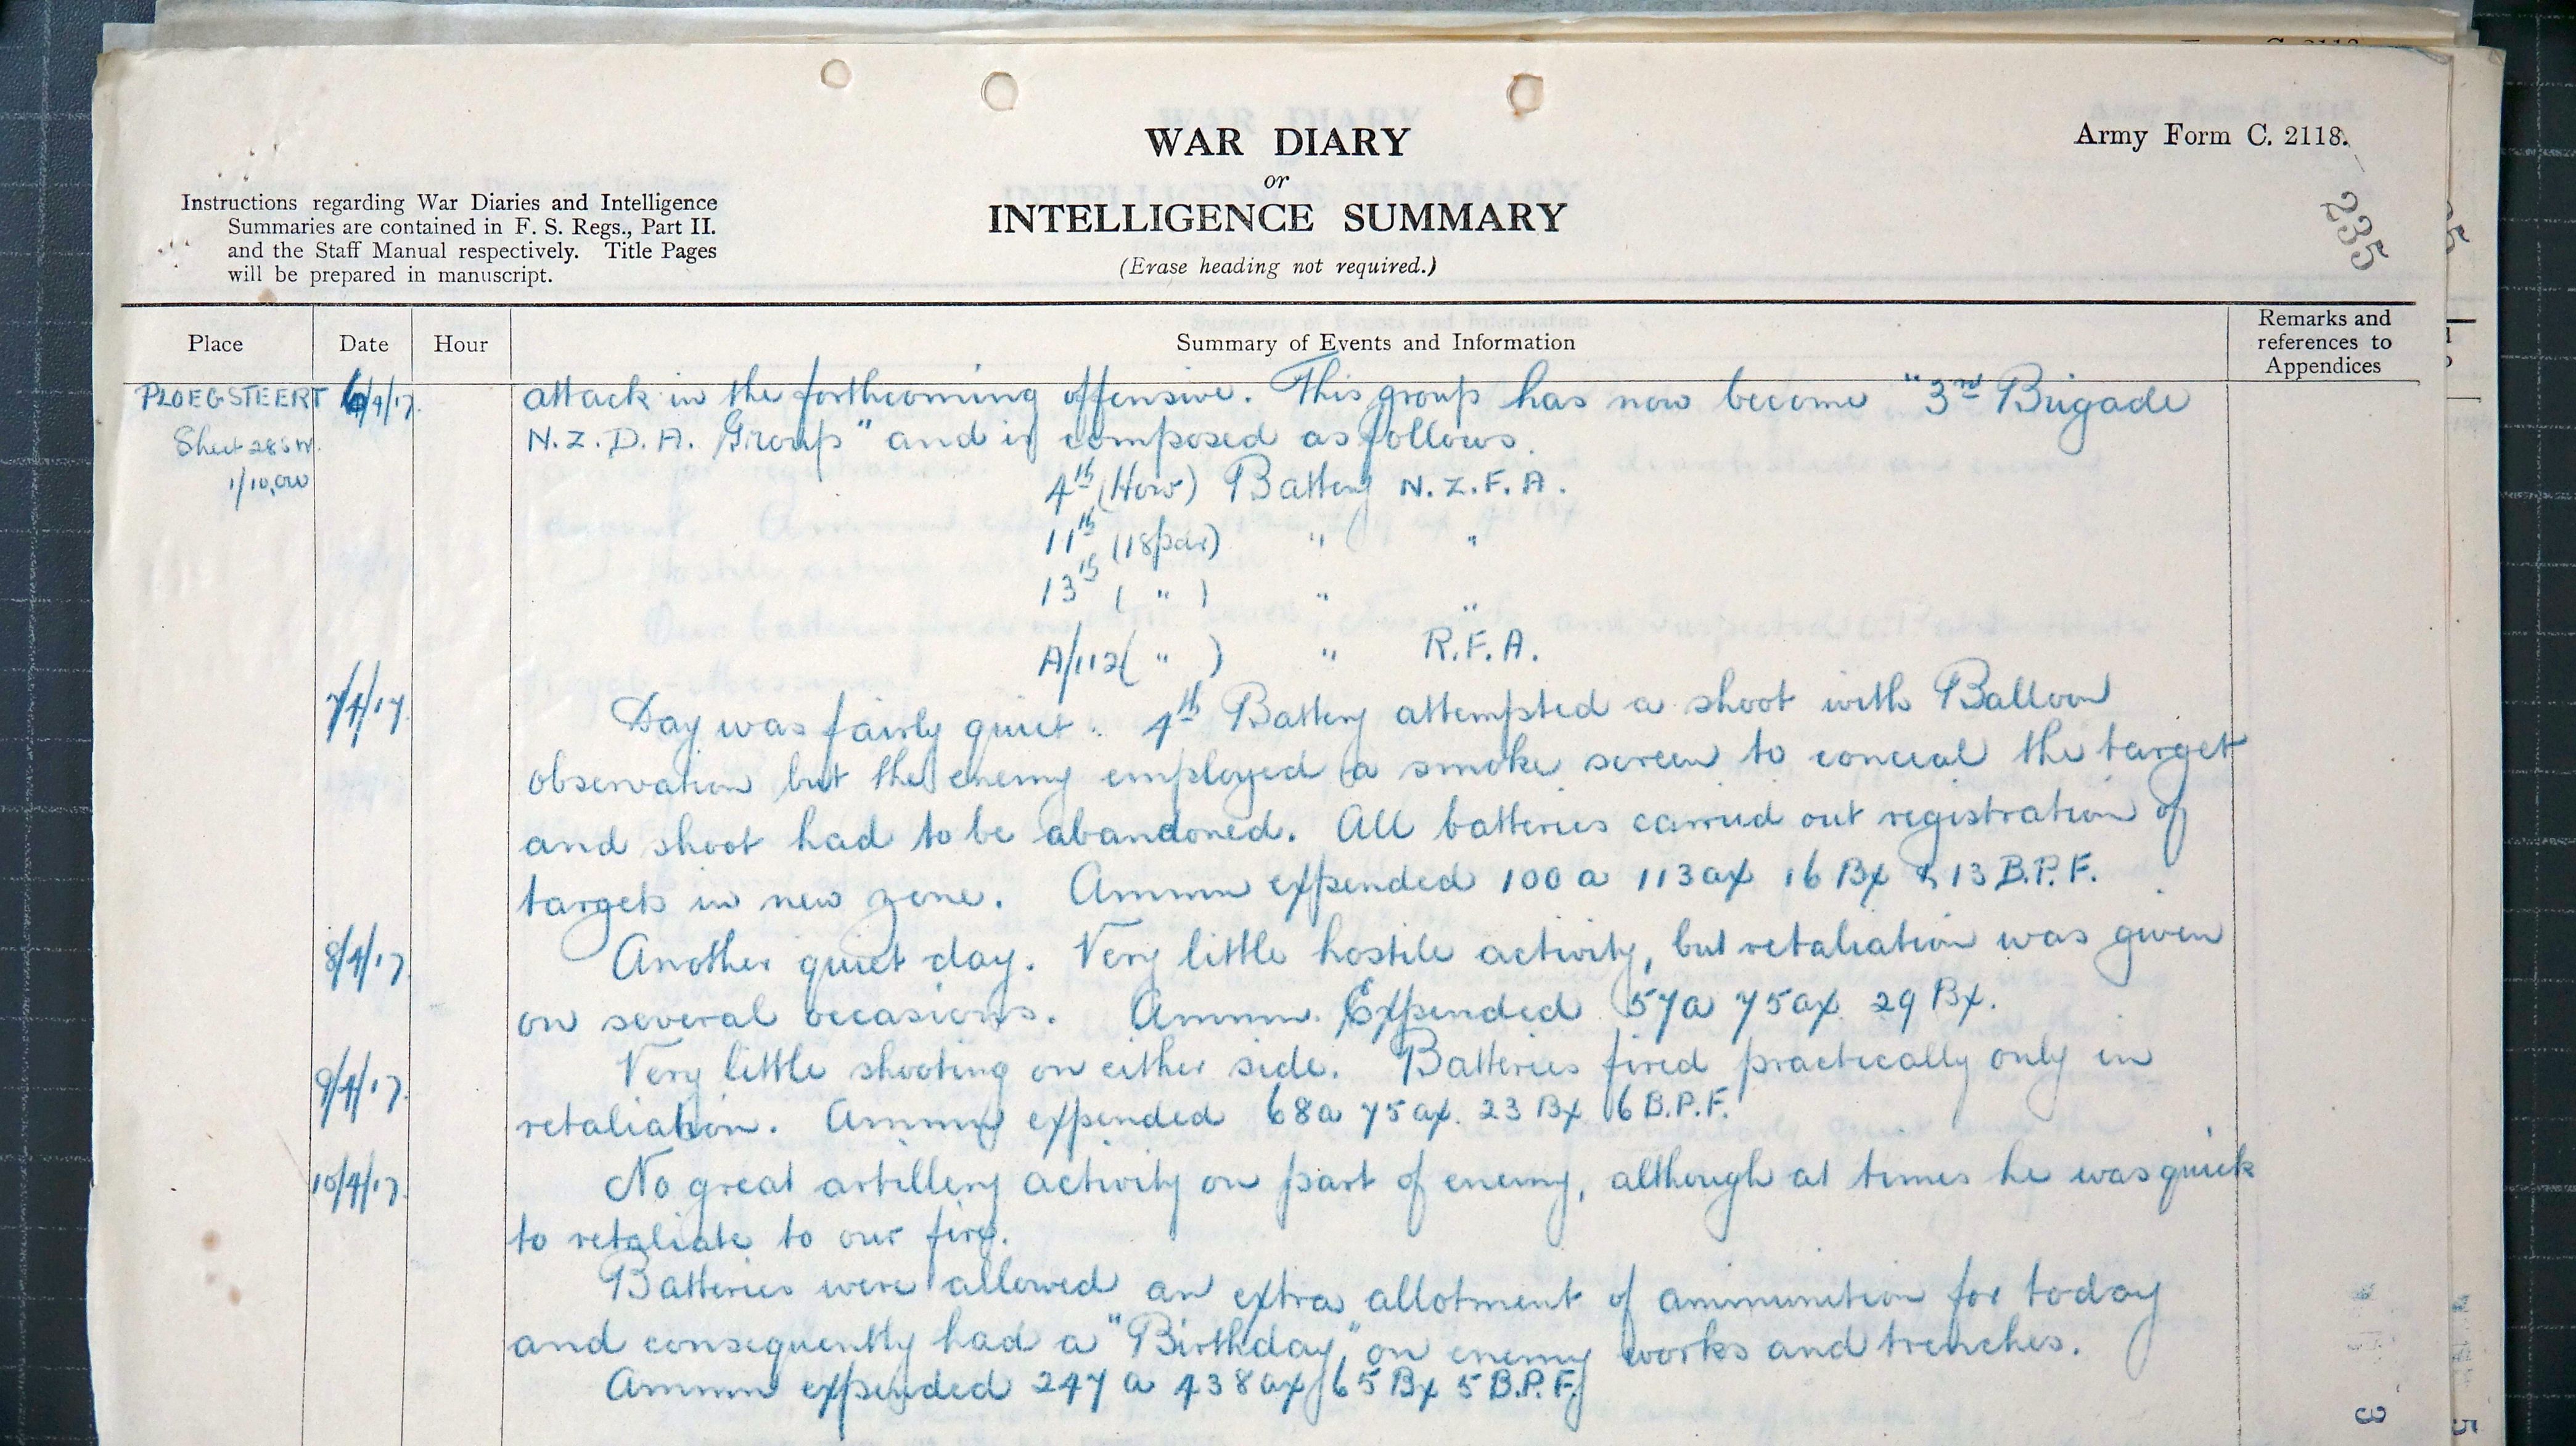 WAR DIARY
or
INTELLIGENCE SUMMARY
(Erase heading not required.)
Army Form C. 2118.
235
Instructions regarding War Diaries and Intelligence
Summaries are contained in F. S. Regs., Part II.
and the Staff Manual respectively. Title Pages
will be prepared in manuscript.
Place Date Hour Summary of Events and Information Remarks and references to Appendices
PLOEGSTEERT 6/4/17. attack in the forthcoming offensive. This group has now become "3rd Brigade
Sheet 28 S.W. N.Z.D.A. Group" and is composed as follows.
1/10,000 4th (How) Battery N.Z.F.A.
11th (18pdr) " "
13th ( " ) " "
A/112 ( " ) " R.F.A.
7/4/17. Day was fairly quiet. 4th Battery attempted a shoot with Balloon
observation but the enemy employed a smoke screen to conceal the target
and shoot had to be abandoned. All batteries carried out registration of
targets in new zone. Ammn expended 100 a 113 ax 16 Bx & 13 B.P.F.
8/4/17. Another quiet day. Very little hostile activity, but retaliation was given
on several occasions. Ammn. Expended 57a 75ax. 29 Bx.
9/4/17. Very little shooting on either side. Batteries fired practically only in
retaliation. Ammn expended 68a 75 ax. 23 Bx 16 B.P.F.
10/4/17. No great artillery activity on part of enemy, although at times he was quick
to retaliate to our fire.
Batteries were allowed an extra allotment of ammunition for today
and consequently had a "Birthday" on enemy works and trenches.
Ammn expended 247 a 438 ax 65 Bx 5 B.P.F.
3